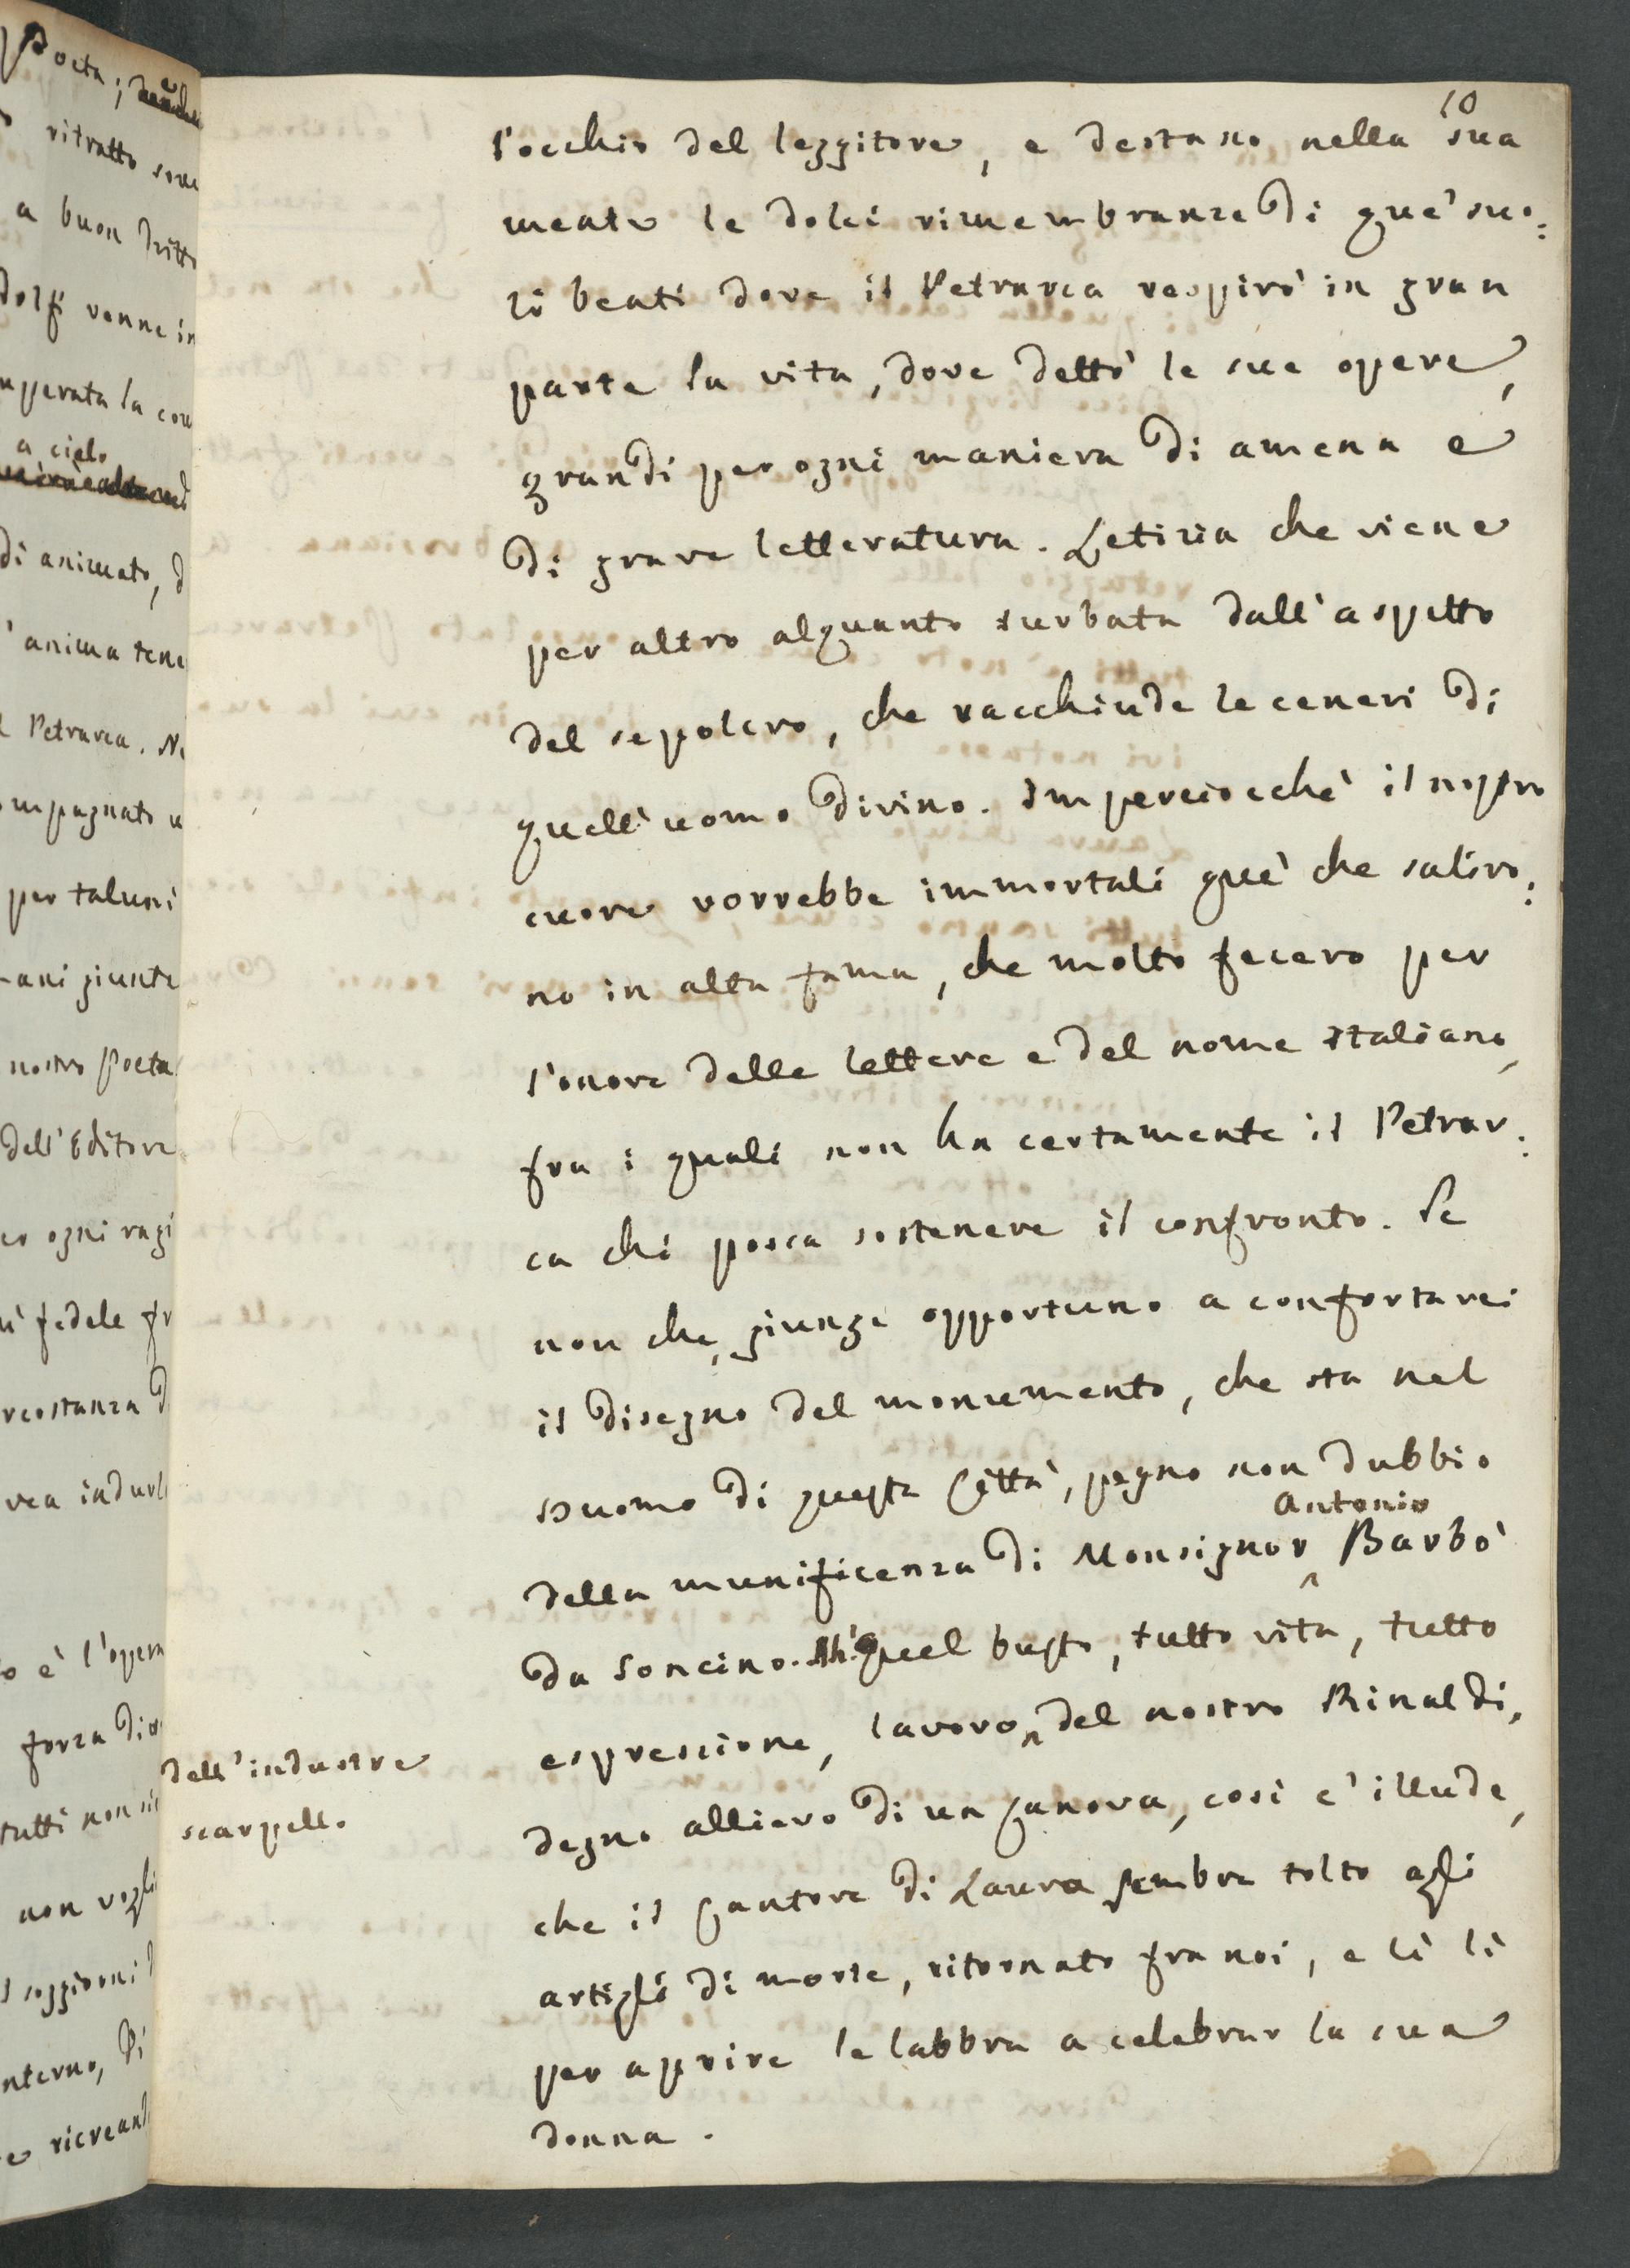 Poeta; 
ritratto
a buon dritto
dolfi venne in
uperata la
a cielo
di animato, d
l'anima tene
l Petrarca. Ne
ompagnato
per taluni
giunte
nostro Poeta
dell'Editore
ogni ragi
fedele fr
rcostanza d
rea indurl
o è l'opera
forza di
tutti non si
non vogli
soggiorni
nterno, di
ricreand
10
l'occhio del leggitore, e destano nella sua
mente le dolci rimembranze di que' suo:
li beati dove il Petrarca respirò in gran
parte la vita, dove dettò le sue opere,
grandi per ogni maniera di amena e
di grave letteratura. Letizia che viene
per altro alquanto turbata dall'aspetto
del sepolcro, che racchiude le ceneri di
quell'uomo divino. Imperciocchè il nostro
cuore vorrebbe immortali que' che saliro:
no in alta fama, che molto fecero per
l'onore delle lettere e del nome italiano,
fra i quali non ha certamente il Petrar:
ca chi possa sostenere il confronto. Se
non che, giunge opportuno a confortarci
il disegno del monumento, che sta nel
Duomo di questa Città, pegno non dubbio
Antonio
della munificenza di Monsignor ^ Barbò
da Soncino. Ah! Quel busto, tutto vita, tutto
espressione, lavoro ^ del nostro Rinaldi,
dell'industre
scarpello
degno allievo di un Canova, così c'illude,
che il Cantore di Laura sembra tolto agli
artigli di morte, ritornato fra noi, e lì lì
per aprire le labbra a celebrar la sua
donna.